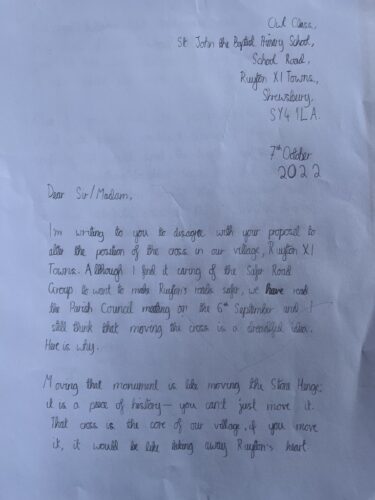 Owl Class,
St John the Baptist Primary School,
School Road,
Ruyton XI Towns,
Shrewsbury,
SY4 1LA.
7th October
2022
Dear Sir/Madam,
I'm writing to you to disagree with your proposal to
alter the position of the cross in our village, Ruyton XI
Towns. Although I find it caring of the Safer Road
Group to want to make Ruyton's roads safer, we have read
the Parish Council meeting on the 6th September and I
still think that moving the cross is a dreadful idea.
Here is why.
Moving that monument is like moving the Stone Henge;
it is a piece of history — you can't just move it.
That cross is the core of our village, if you move
it, it would be like taking away Ruyton's heart